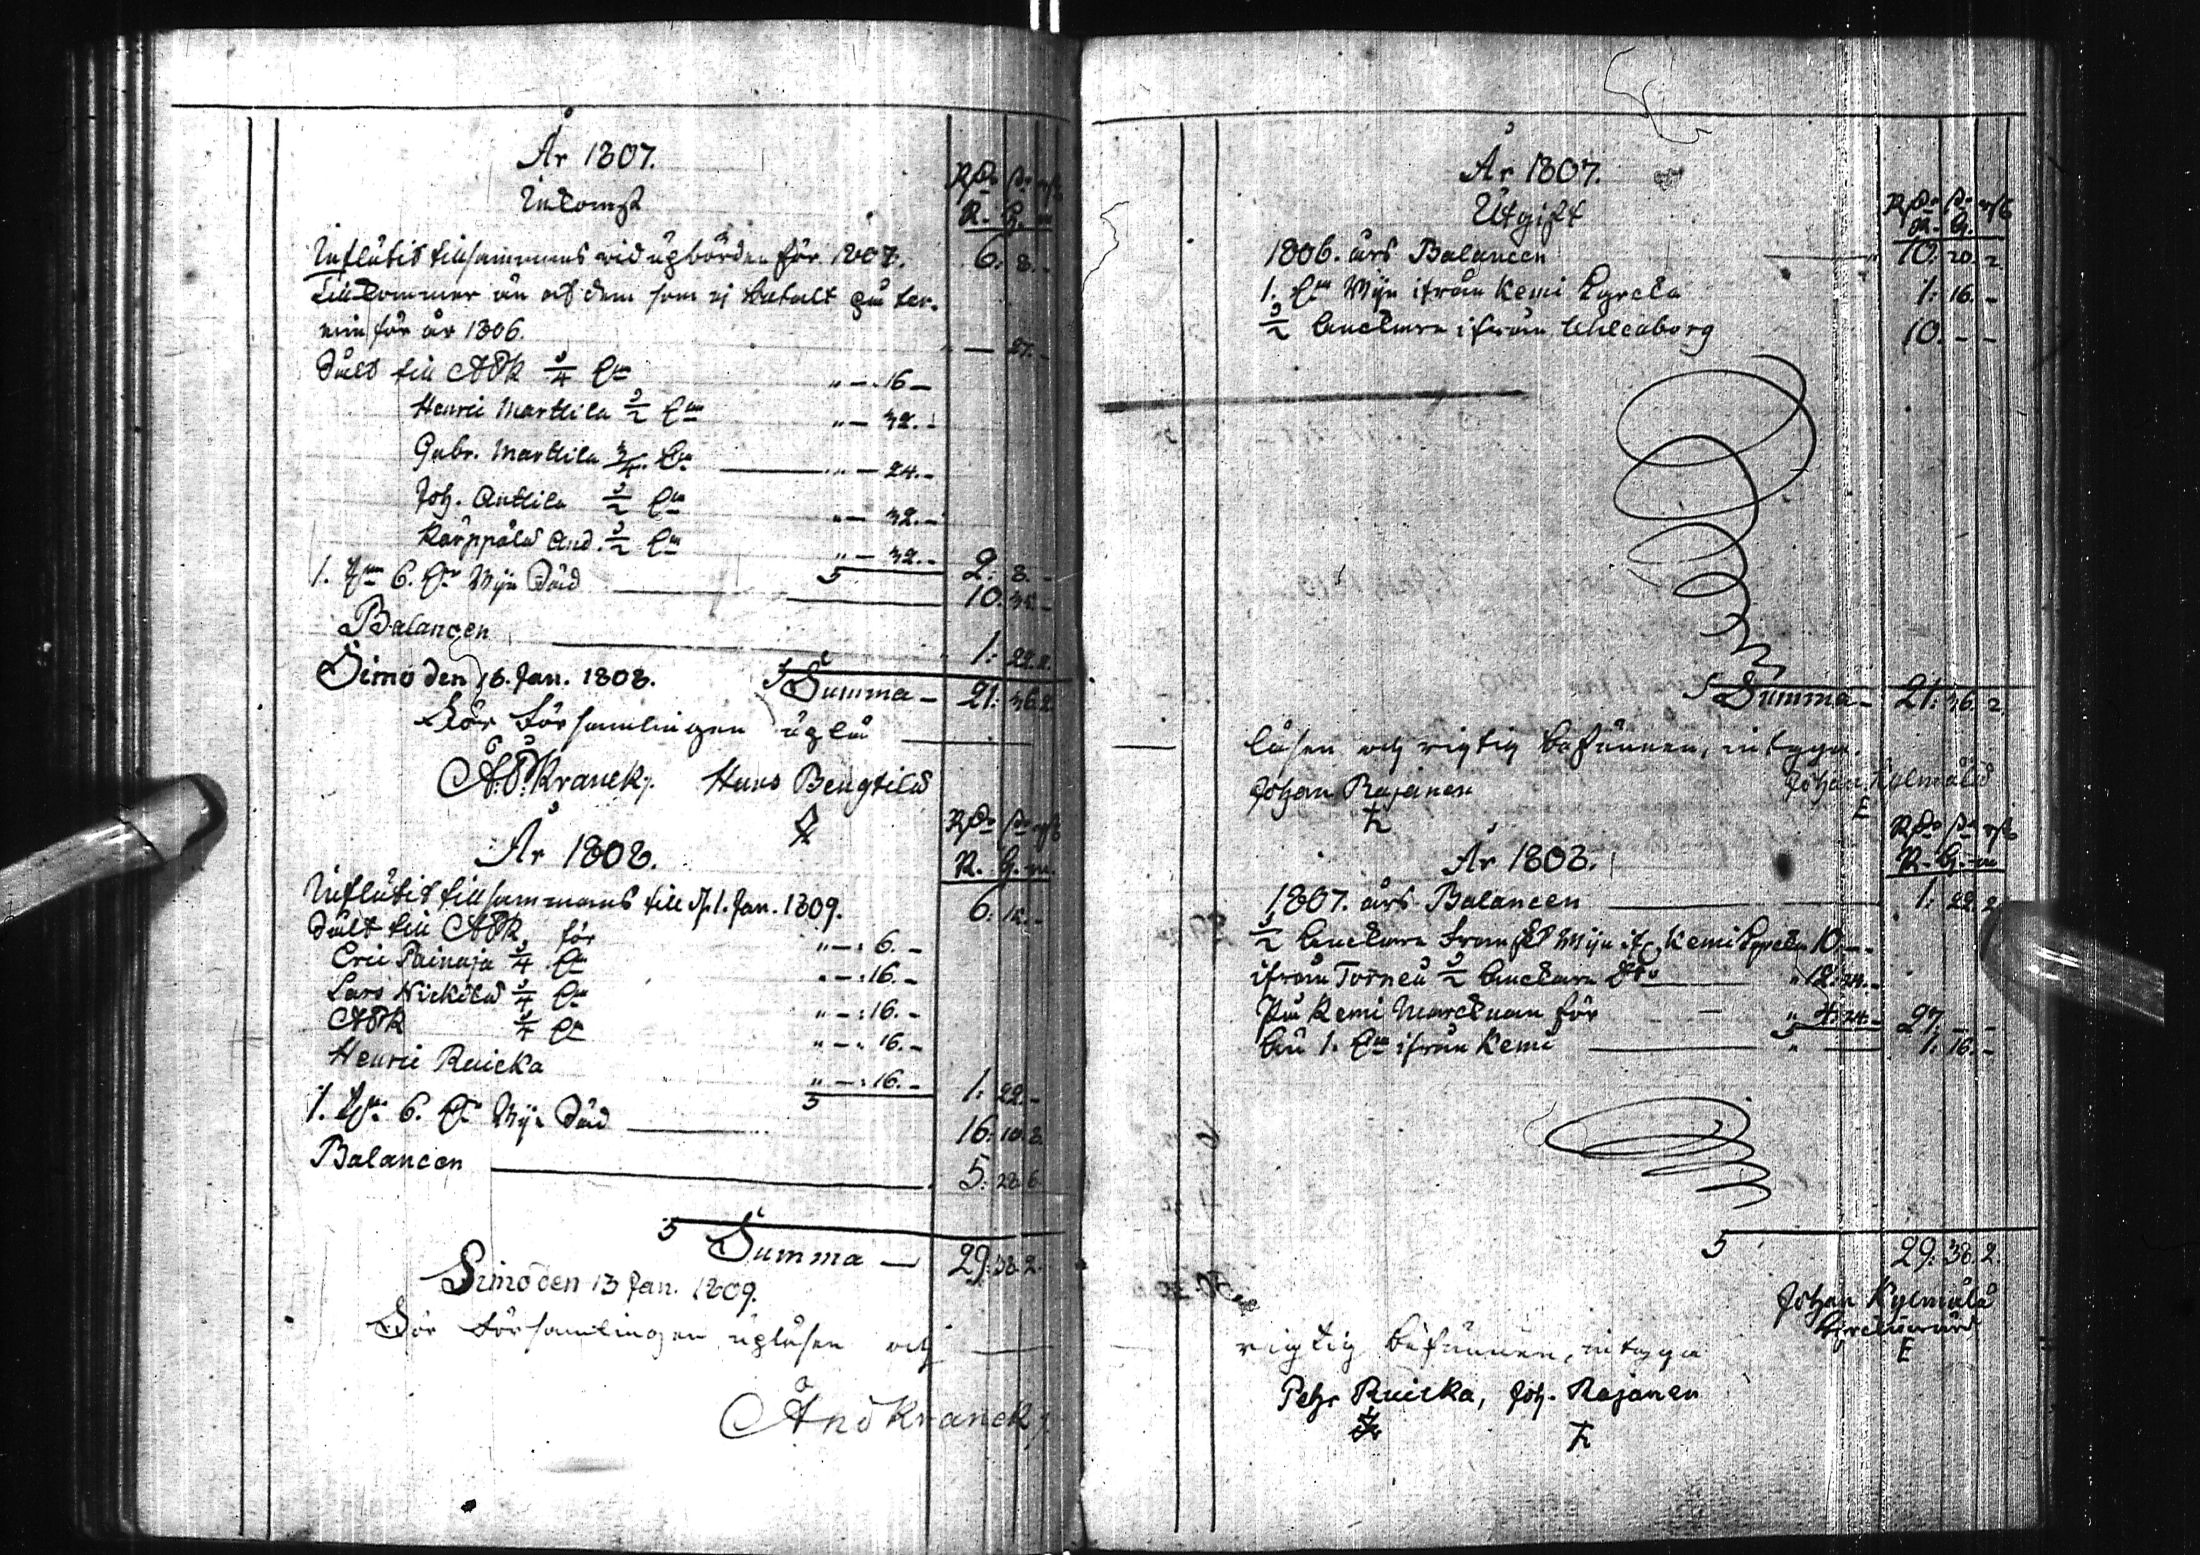 År 1807.
Inkomst
R:dr s. rst
R. G.
Influtit tillsammans vid upbörden för 1807. 6: 8. -
Tillkommer än af dem som ej betalt på ter-
min för år 1806. " — 
Såldt till AOK 1/4 K:na " — : 16 —
Henric Marttila 1/2 K:na " — 32. -
Gabr. Marttila 3/4 K:na " — 24. -
Joh. Anttila 1/2 K:na " — 32. -
Karppala And. 1/2 K:na " — 32. - 2: 8. -
1. 6. K:r Wijn Såld 10:
Balancen 1: 22. 2.
Simo den 16. Jan. 1808. Summa — 21: 36. 2
För Församlingen uplä
A:O: Kranck. Hans Bengtilä
R:dr s. rst
År 1808.
R. G. m.
Influtit tillsammans till d. 1. Jan. 1809. 6: 12. -
Såldt till AOK för " — : 6. -
Eric Painaja 1/4 K:na " — : 16. -
Lars Nickilä 1/4 K:na " — : 16. -
AOK 1/4 K:na " — : 16. -
Henric Ruicka " — : 16. - 1: 22. -
1. 6. K:r Wijn Såld 16: 10. 8.
Balancen 5: 28. 6.
Summa — 29: 38. 2.
Simo den 13 Jan. 1809.
För Församlingen upläsen och
And Kranck
År 1807.
Utgift
R:dr s. rst
R. G.
1806. års Balancen 10: 20. 2
1. K:na Wijn ifrån Kemi Kyrcka 1: 16. -
1/2 Anckare ifrån Uhleåborg 10. - -
Summa — 21: 36. 2.
läsen och rigtig befunnen, intyga.
Johan Rajanen Johan Kylmälä
E
R:dr s. rst
År 1808.
R. G. m
1807. års Balancen 1: 22. 2
1/2 Anckare Wijn if. Kemi Kyrcka 10. — -
ifrån Torneå 1/2 Anckare D:o " 12: 24. -
På Kemi Marcknan för " 4: 24 - 27: - -
Än 1. K:na ifrån Kemi " — 1: 16. -
29: 38. 2.
Johan Kylmälä
Kyrckiovärd
E
rigtig befunnen, intyga
Pehr Ruicka, Joh. Rajanen